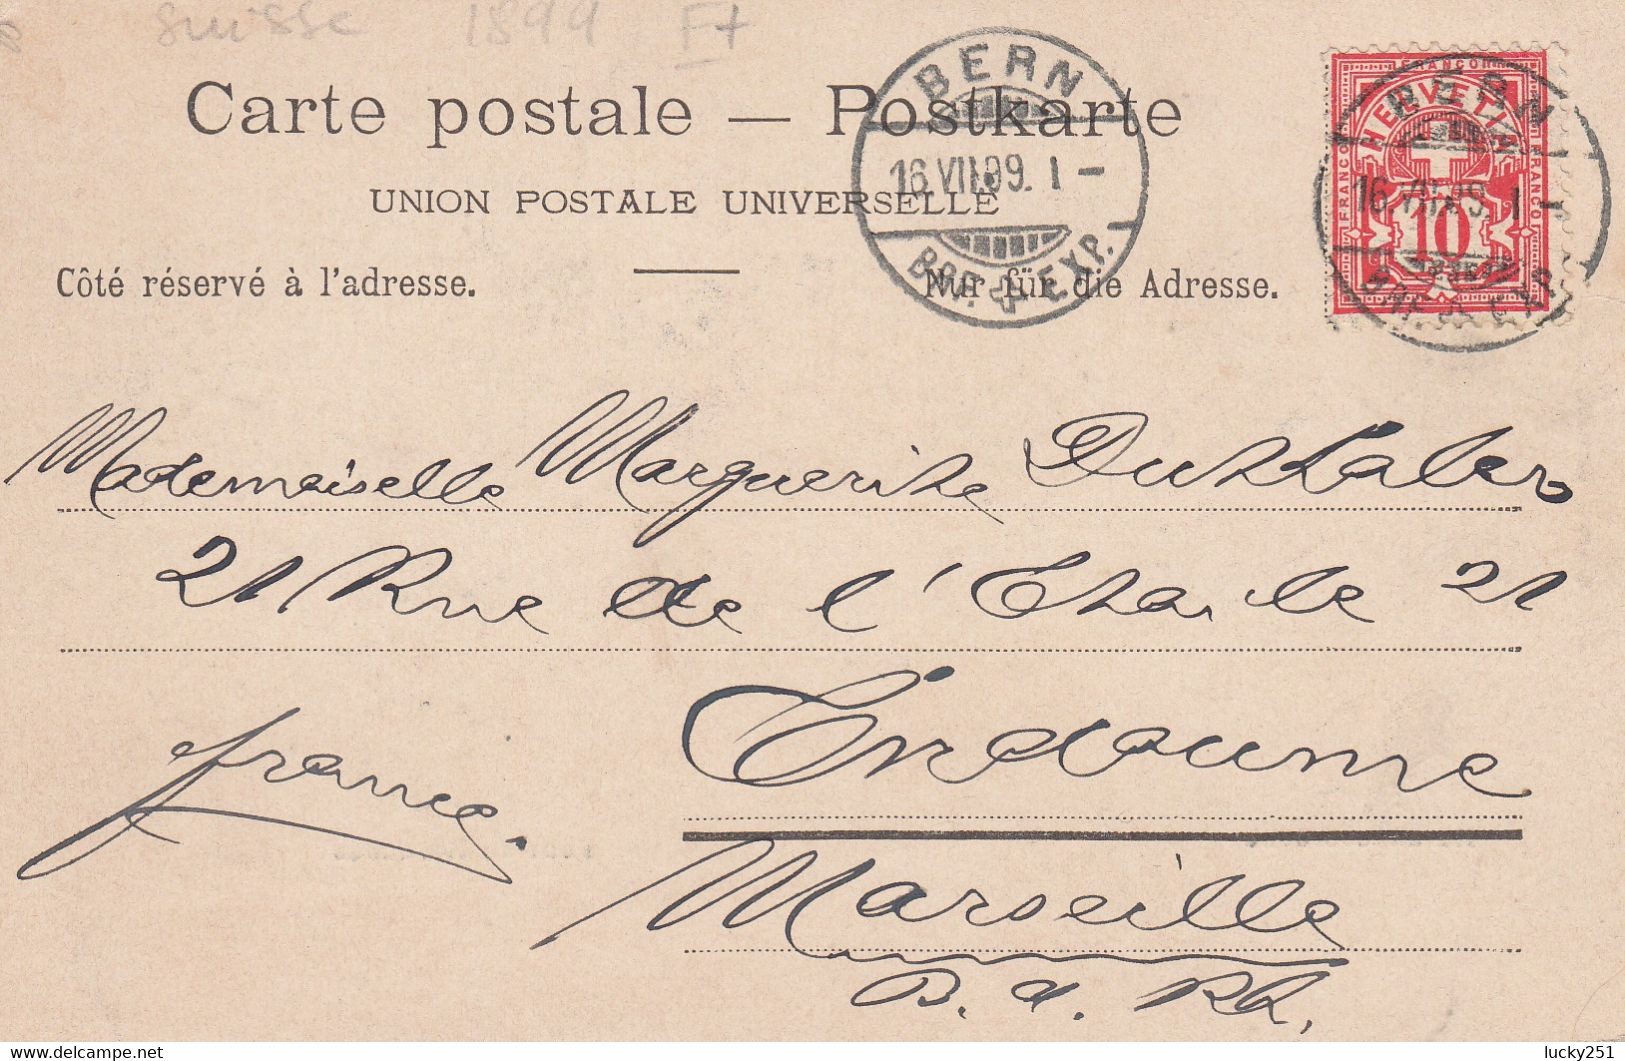 suisse 1899 F7
Carte postale — Postkarte
UNION POSTALE UNIVERSELLE
Côté réservé à l'adresse. Nur für die Adresse.
BERN
16.VII.99. I –
BRF. EXP.
FRANCO
HELVETIA
FRANCO
FRANCO
10
BERN
16.VII.99. I –
BRF. EXP.
Mademoiselle Marguerite
21 Rue de l'Etoile 21
Endoume
france.
Marseille
B. d. Rh.
lucky251